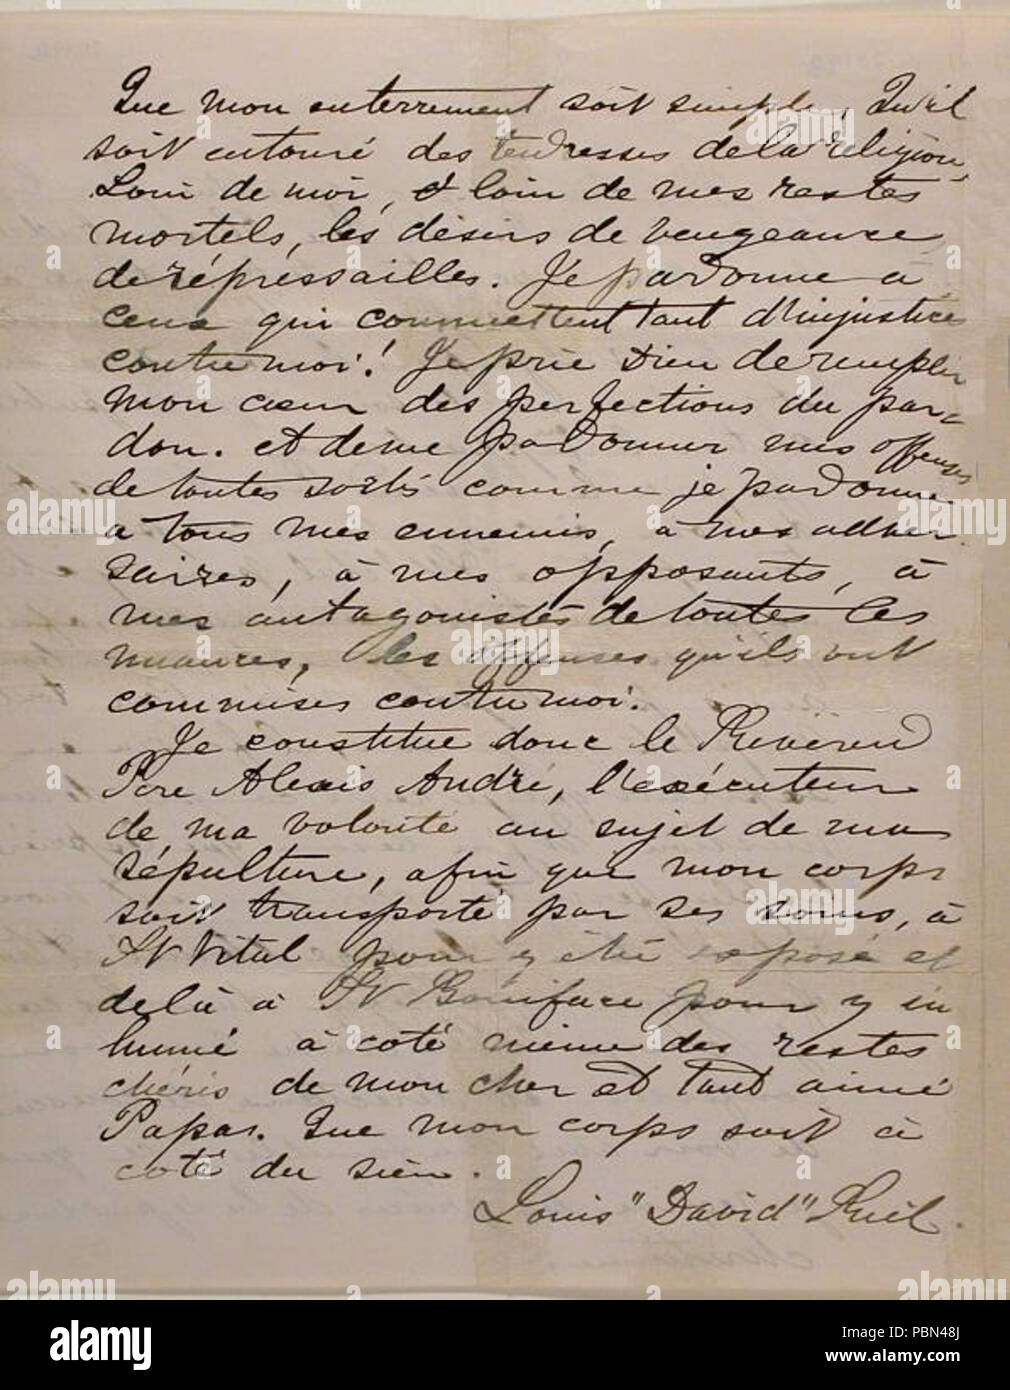 Que mon enterrement soit simple. Qu'il
soit entouré des tendresses de la religion.
Loin de moi, et loin de mes restes
mortels, les désirs de vengeance
de répressailles. Je pardonne à
ceux qui commettent tant d'injustices
contre moi! Je prie Dieu de remplir
mon cœur des perfections du par-
don. et de me pardonner mes offenses
de toutes sortes comme je pardonne
a tous mes ennemis, à mes adver
saires, à mes opposants, à
mes antagonistes de toutes les
nuances, les offenses qu'ils ont
commises contre moi.
Je constitue donc le Révérend
Père Alexis André, l'exécuteur
de ma volonté au sujet de ma
sépulture, afin que mon corps
soit transporté par ses soins, à
St Vital pour y être exposé et
de là à St Boniface pour y in
humé à coté même des restes
chéris de mon cher et tant aimé
Papa. Que mon corps soit à
coté du sien.
Louis "David" Riel.
alamy
Image ID: PBN48J
www.alamy.com